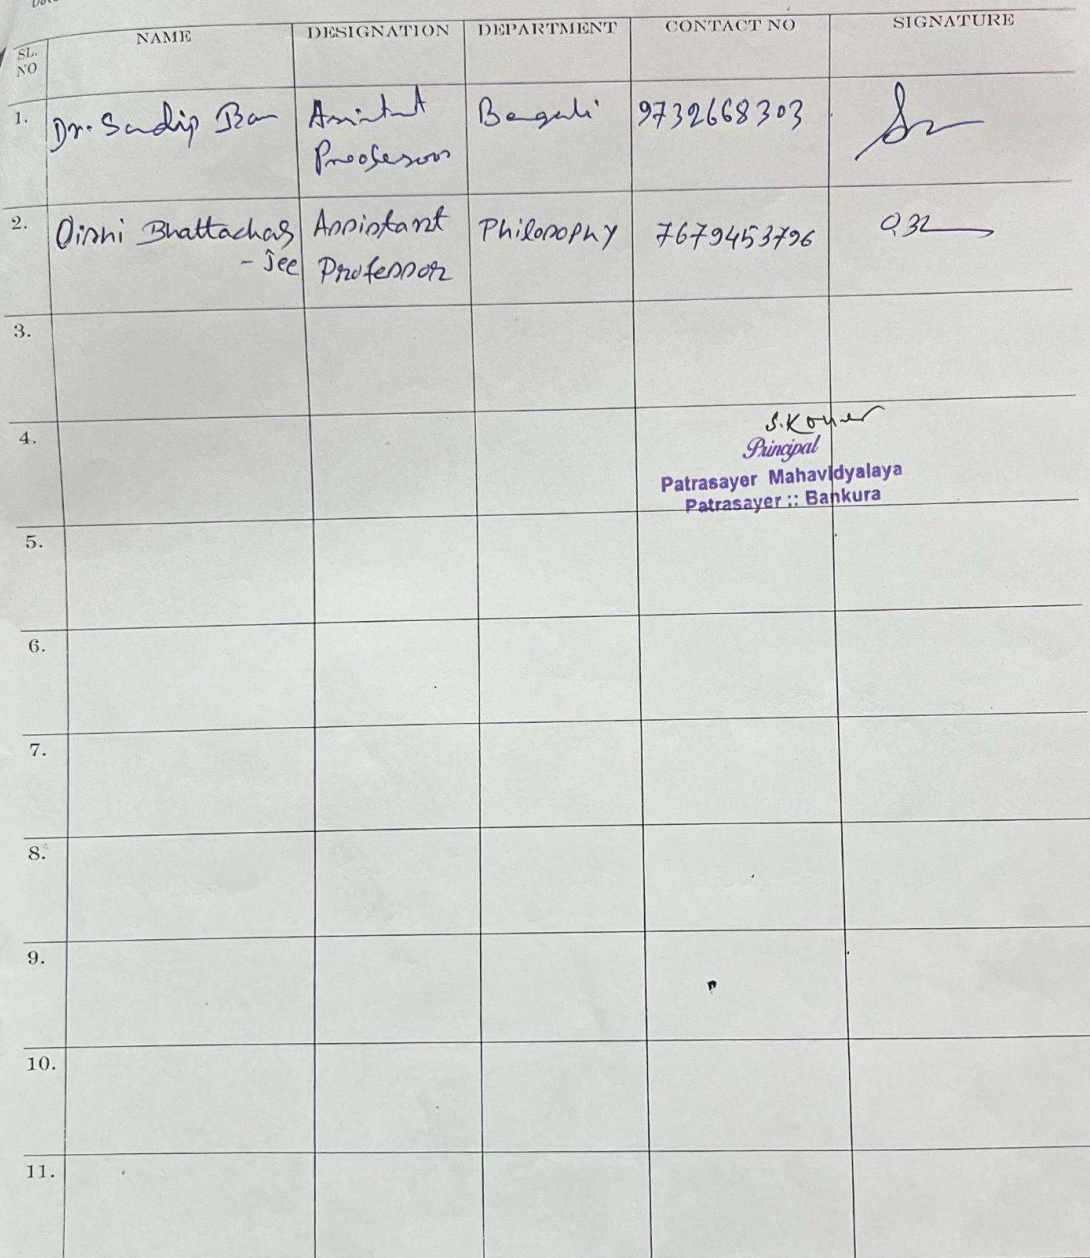 SL. NO NAME DESIGNATION DEPARTMENT CONTACT NO SIGNATURE
1. Dr. Sandip Ban Assistant Professor Bengali 9732668303
2. Oishi Bhattacharjee Assistant Professor Philosophy 7679453796
3.
4.
S. Koner
Principal
Patrasayer Mahavidyalaya
Patrasayer :: Bankura
5.
6.
7.
8.
9.
10.
11.